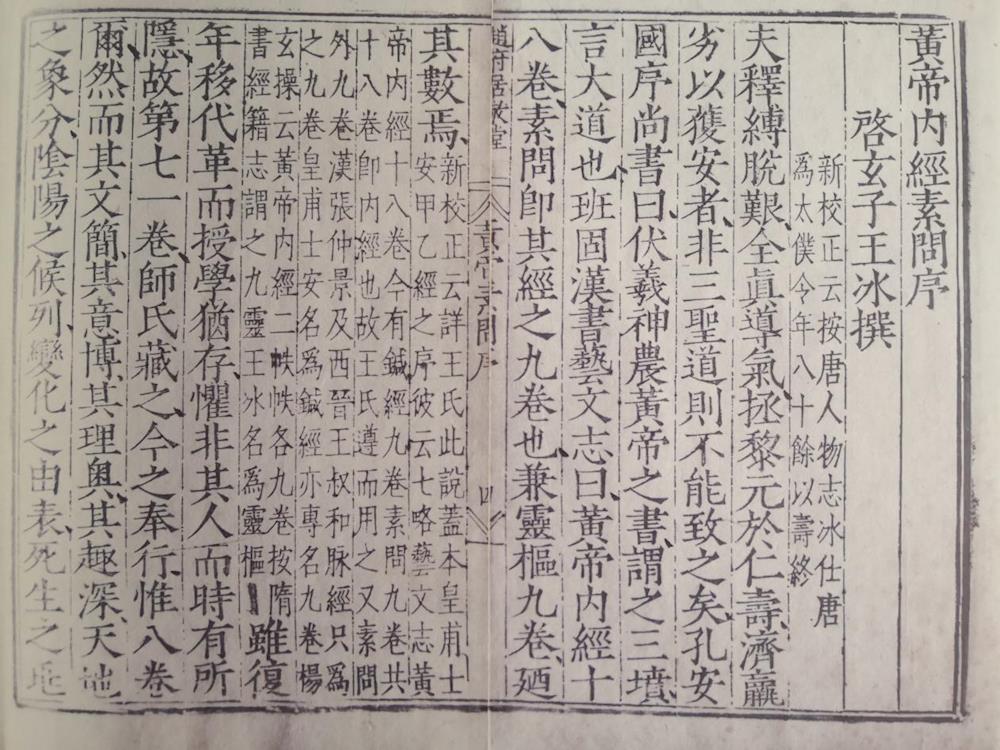 黃帝內經素問序
啓玄子王冰撰
新校正云按唐人物志冰仕唐
爲太僕令年八十餘以壽終
夫釋縛脫艱、全眞導氣、拯黎元於仁壽、濟羸
劣以獲安者、非三聖道則不能致之矣、孔安
國序尚書曰、伏羲神農黃帝之書、謂之三墳、
言大道也、班固漢書藝文志曰、黃帝內經十
八卷、素問卽其經之九卷也、兼靈樞九卷、廼
趙府居敬堂
素問序
四
其數焉、
新校正云詳王氏此說蓋本皇甫士
安甲乙經之序彼云七略藝文志黃
帝內經十八卷今有鍼經九卷素問九卷共
十八卷卽內經也故王氏遵而用之又素問
外九卷漢張仲景及西晉王叔和脉經只爲
之九卷皇甫士安名爲鍼經亦專名九卷楊
玄操云黃帝內經二帙帙各九卷按隋
書經籍志謂之九靈王冰名爲靈樞
雖復
年移代革而授學猶存、懼非其人而時有所
隱、故第七一卷、師氏藏之、今之奉行惟八卷
爾、然而其文簡、其意博、其理奧、其趣深、天地
之象分、陰陽之候列、變化之由表、死生之